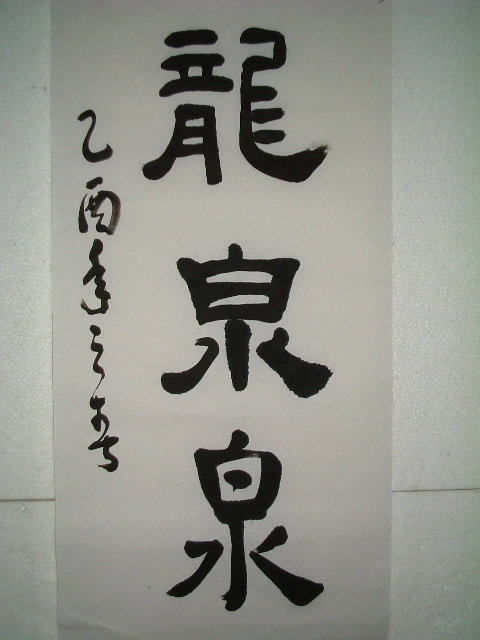 龍泉泉
乙酉年之春